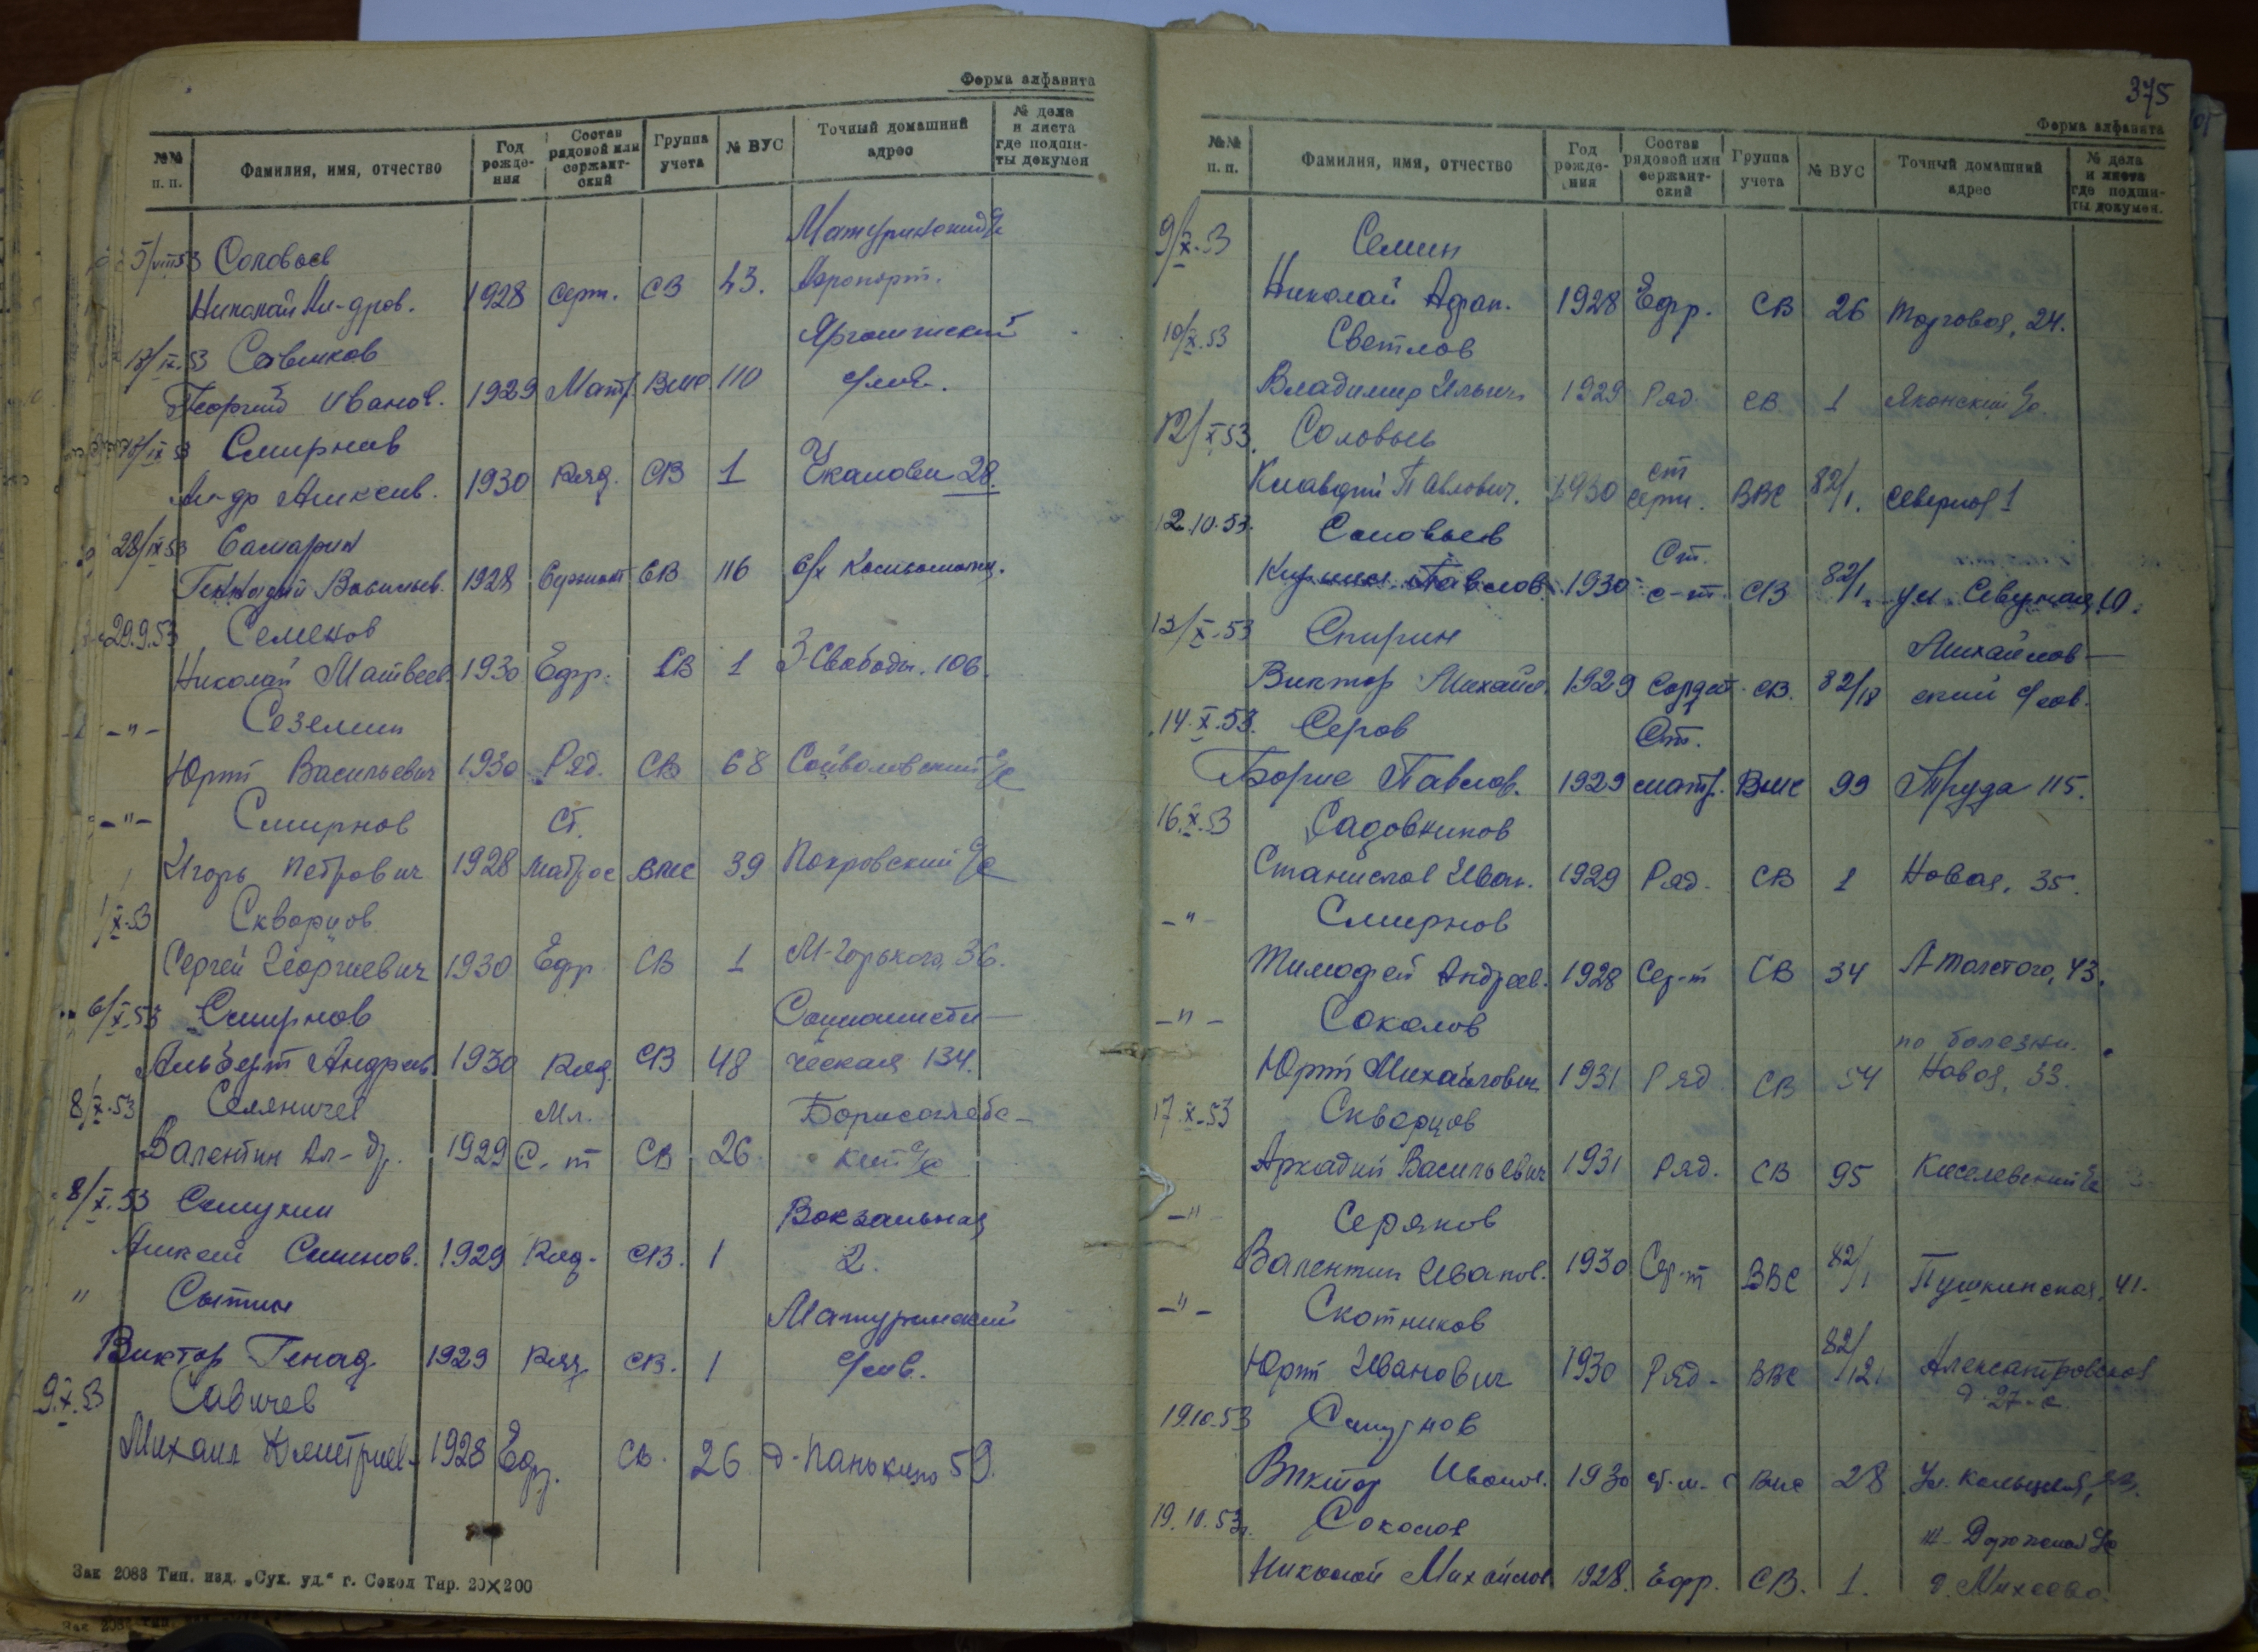 Форма алфавита
№№ п. п. Фамилия, имя, отчество Год рождения Состав рядовой или сержантский Группа учета № ВУС Точный домашний адрес № дела и листа где подшиты докумен
5/VIII 53 Соловьев
Николай Ал-дров. 1928 серж. СВ 43. Аэропорт.
18/IX.53 Савиков
Георгий Иванов. 1929 Матр. ВМС 110 с/сов.
IX 53 Смирнов
Ал-др Алексеев. 1930 Ряд. СВ 1 Чкалова 28.
28/IX 53 Самарин
Геннадий Васильев. 1928 Сержант СВ 116
29.9.53 Семенов
Николай Матвеев. 1930 Ефр. СВ 1 3-Свободы. 106.
-"- Сеземин
Юрий Васильевич 1930 Ряд. СВ 68 с/с
-"- Смирнов Ст.
Игорь Петрович 1928 матрос ВМС 39 Покровский с/с
1/X-53 Скворцов
Сергей Георгиевич 1930 Ефр СВ 1 М-Горького, 36.
6/X-53 Смирнов Социалисти-
Альберт Андреев. 1930 Ряд. СВ 48 ческая 134.
8/X-53 Селяничев Мл. Борисоглебс-
Валентин Ал-др. 1929 С-т СВ 26 кий с/с
8/X-53 Вокзальная
Алексей 1929 Ряд. СВ. 1 2.
" Сытин Матуринский
Виктор Генад. 1929 Ряд. СВ. 1 с/сов.
9.X.53 Савичев
Михаил Дмитриев. 1928 Ефр. СВ. 26 д-Панькино 59.
Зак 2083 Тип. изд. „Сух. уд.“ г. Сокол Тир. 20×200
375
Форма алфавита
№№ п. п. Фамилия, имя, отчество Год рождения Состав рядовой или сержантский Группа учета № ВУС Точный домашний адрес № дела и листа где подшиты докумен.
9/X-53 Семин
Николай Афан. 1928 Ефр. СВ 26 Торговая, 24.
10/X.53 Светлов
Владимир Ильич 1929 Ряд. СВ 1 с/с.
12/X 53. Соловьев ст
Клавдий Павлович. 1930 серж. ВВС 82/1. Северная 1
12.10.53. Соловьев Ст.
Павлов. 1930 с-т. СВ 82/1. ул. Северная, 10.
13/X-53 Спирин Михайлов-
Виктор Михайл. 1929 Солдат. СВ. 82/18 ский с/сов.
14.X.53. Серов Ст.
Борис Павлов. 1929 матр. ВМС 99 Труда 115.
16.X.53 Садовников
Станислав Иван. 1929 Ряд. СВ 1 Новая, 35.
-"- Смирнов
Тимофей Андреев. 1928 Сер-т СВ 34 Л-Толстого, 43.
-"- Соколов по болезни.
Юрий Михайлович 1931 Ряд СВ 54 Новая, 33.
17.X-53 Скворцов
Аркадий Васильевич 1931 Ряд. СВ 95 Киселевский с/с
-"- Серяков
Валентин Иванов. 1930 Сер-т ВВС 82/1 Пушкинская, 41.
-"- Скотников
Юрий Иванович 1930 Ряд. ВВС 82/121 Александровская
д. 27-а.
19.10.53 Смирнов
Виктор Иванов. 1930 ст.м. ВМС 28
19.10.53г. Соколов
Николай Михайлов 1928. Ефр. СВ. 1. д. Михеево.